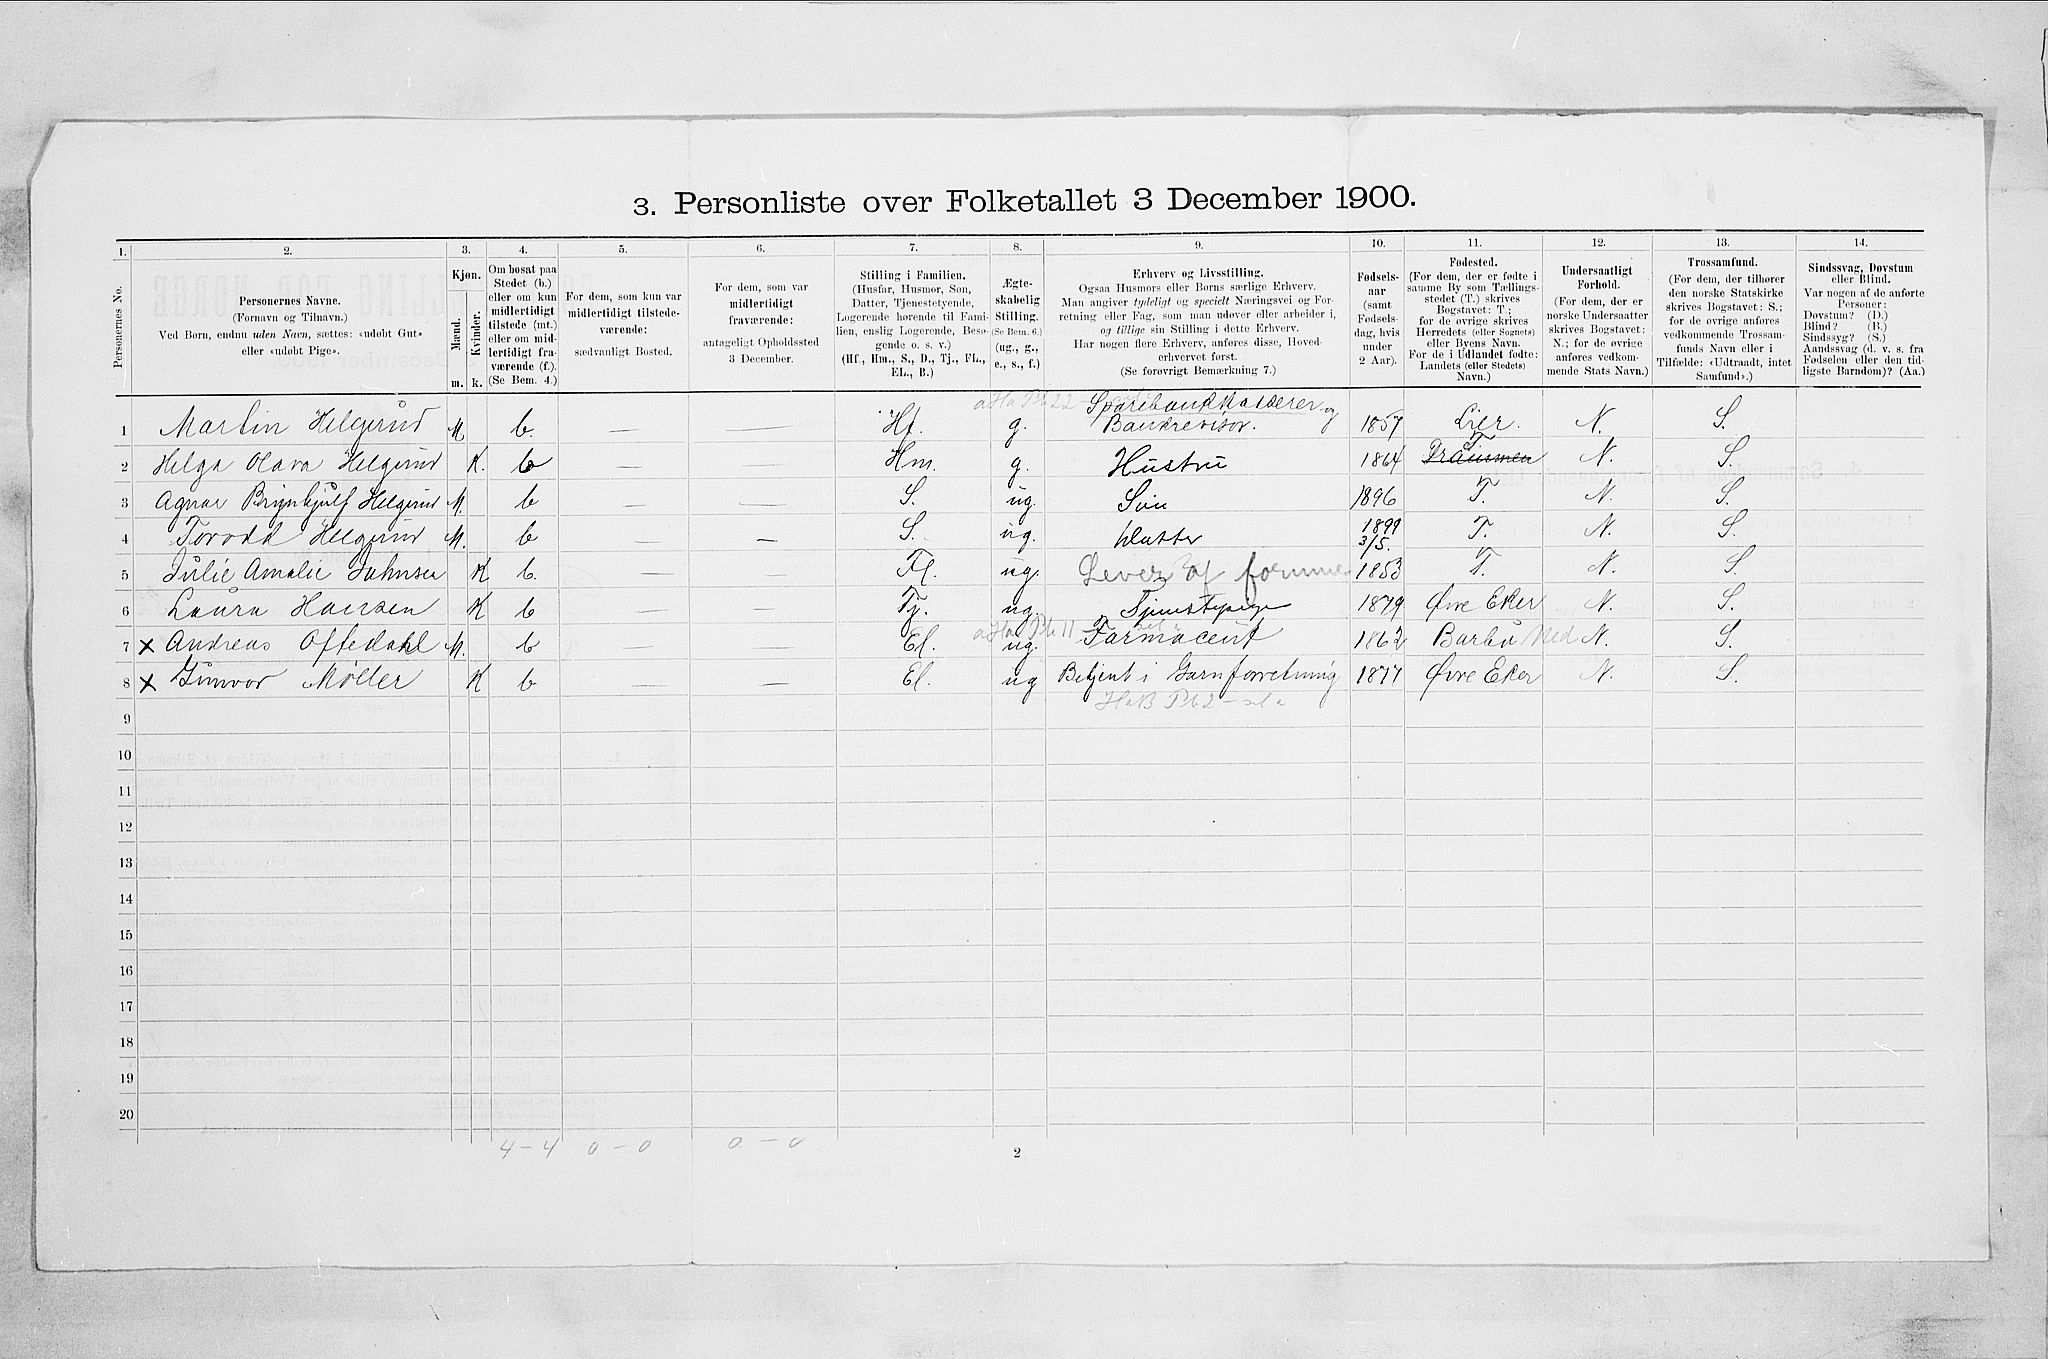 3. Personliste over Folketallet 3 December 1900.
1. 2. 3. 4. 5. 6. 7. 8. 9. 10. 11. 12. 13. 14.
Personernes No.
Personernes Navne.
(Fornavn og Tilnavn.)
Ved Børn, endnu uden Navn, sættes: «udøbt Gut»
eller «udøbt Pige».
Kjøn.
Mænd.
Kvinder.
m. k.
Om bosat paa
Stedet (b.)
eller om kun
midlertidigt
tilstede (mt.)
eller om mid-
lertidigt fra-
værende (f.).
(Se Bem. 4.)
For dem, som kun var
midlertidigt tilstede-
værende:
sædvanligt Bosted.
For dem, som var
midlertidigt
fraværende:
antageligt Opholdssted
3 December.
Stilling i Familien.
(Husfar, Husmor, Søn,
Datter, Tjenestetyende,
Logerende hørende til Fami-
lien, enslig Logerende, Besø-
gende o. s. v.)
(Hf., Hm., S., D., Tj., FL.,
EL., B.)
Ægte-
skabelig
Stilling.
(Se Bem. 6.)
(ug., g.,
e., s., f.)
Erhverv og Livsstilling.
Ogsaa Husmors eller Børns særlige Erhverv.
Man angiver tydeligt og specielt Næringsvei og For-
retning eller Fag, som man udøver eller arbeider i,
og tillige sin Stilling i dette Erhverv.
Har nogen flere Erhverv, anføres disse, Hoved-
erhvervet først.
(Se forøvrigt Bemærkning 7.)
Fødsels-
aar
(samt
Fødsels-
dag, hvis
under
2 Aar).
Fødested.
(For dem, der er fødte i
samme By som Tællings-
stedet (T.) skrives
Bogstavet: T.;
for de øvrige skrives
Herredets (eller Sognets)
eller Byens Navn.
For de i Udlandet fødte:
Landets (eller Stedets)
Navn.)
Undersaatligt
Forhold.
(For dem, der er
norske Undersaatter
skrives Bogstavet:
N.; for de øvrige
anføres vedkom-
mende Stats Navn.)
Trossamfund.
(For dem, der tilhører
den norske Statskirke
skrives Bogstavet: S.;
for de øvrige anføres
vedkommende Trossam-
funds Navn eller i
Tilfælde: «Udtraadt, intet
Samfund».)
Sindssvag, Døvstum
eller Blind.
Var nogen af de anførte
Personer:
Døvstum? (D.)
Blind? (B.)
Sindssyg? (S.)
Aandssvag (d. v. s. fra
Fødselen eller den tid-
ligste Barndom)? (Aa.)
aHa Pb 22 Sparebankkasserer og
1 Martin Helgerud M b. — — Hf. g. Bankrevisor. 1857 Lier. N. S.
2 Helga Olava Helgerud K. b — — Hm. g. Hustru 1864 Drammen T. N. S.
3 Agnar Brynhjulf Helgerud M. b — — S. ug. Søn 1896 T. N. S.
4 Torodd Helgerud M. b — — S. ug. Datter 1899 3/5. T. N. S.
5 Julie Amalie Johnsen K b. — — Fl. ug. Lever af formue 1853 T. N. S.
6 Laura Hansen K b — — Tj. ug. Tjenestepige 1879 Øvre Eker N. S.
7 × Andreas Offedahl M. b — — El. ug. aHa Pb 11 Farmaceut 1862 Barbu Ned N. S.
8 × Gunvor Møller K b — — El. ug Betjent i Garnforretning 1877 Øvre Eker N. S.
HaB Pb2
9
10
11
12
13
14
15
16
17
18
19
20
4 – 4 0 – 0 0 – 0
2